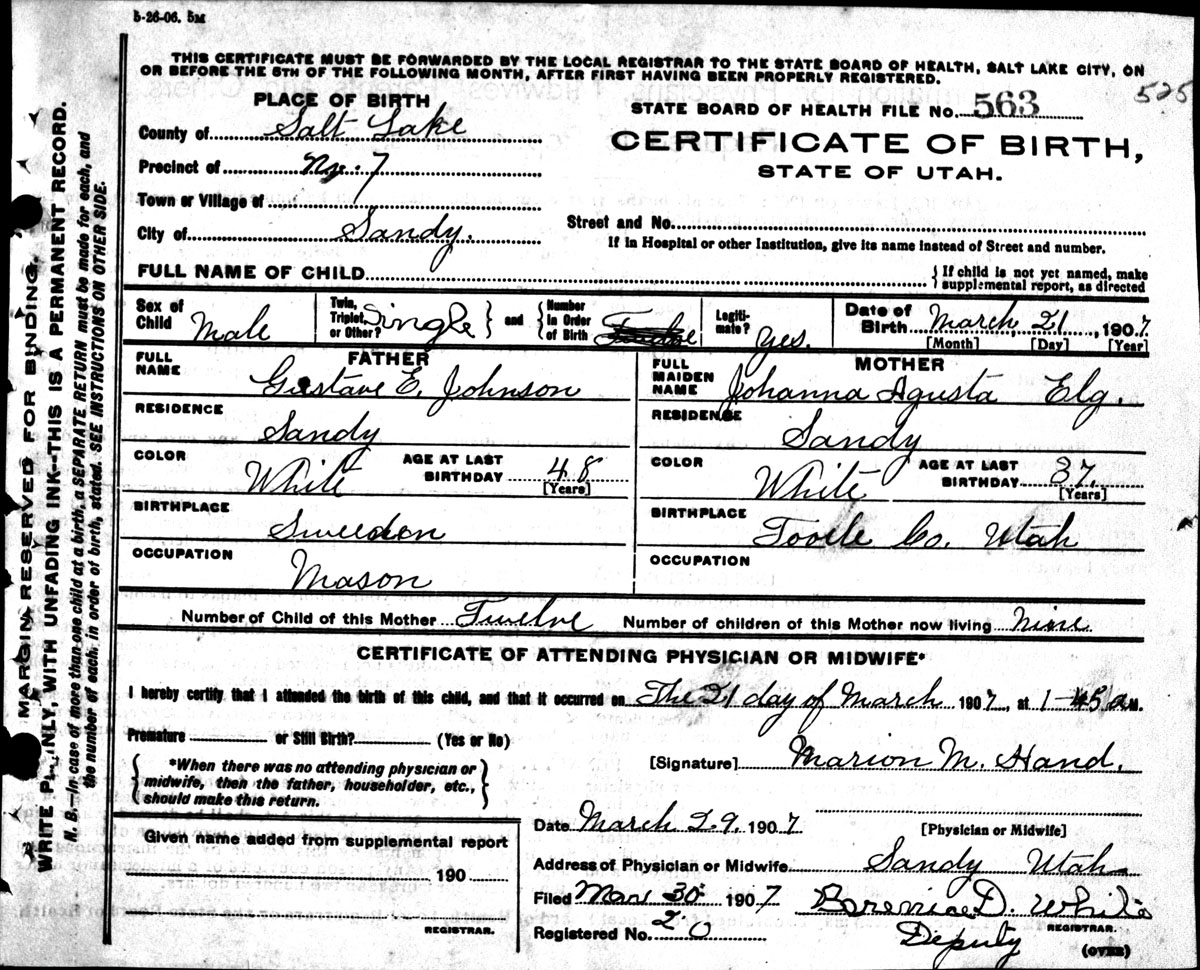 5-26-06. 5M
THIS CERTIFICATE MUST BE FORWARDED BY THE LOCAL REGISTRAR TO THE STATE BOARD OF HEALTH, SALT LAKE CITY, ON
OR BEFORE THE 5TH OF THE FOLLOWING MONTH, AFTER FIRST HAVING BEEN PROPERLY REGISTERED.
525
PLACE OF BIRTH
STATE BOARD OF HEALTH FILE No. 563
County of Salt Lake
CERTIFICATE OF BIRTH,
STATE OF UTAH.
Precinct of No. 7
Town or Village of
Street and No.
City of Sandy.
If in Hospital or other Institution, give its name instead of Street and number.
FULL NAME OF CHILD
{ If child is not yet named, make
supplemental report, as directed
Sex of Child Male
Twin, Triplet, or Other? Single } and { Number in Order of Birth Twelve
Legiti-mate? Yes.
Date of Birth March, 21, 1907
[Month] [Day] [Year]
FATHER
FULL NAME Gustave E. Johnson
MOTHER
FULL MAIDEN NAME Johanna Agusta Elg.
RESIDENCE Sandy
RESIDENCE Sandy
COLOR White AGE AT LAST BIRTHDAY 48 [Years]
COLOR White AGE AT LAST BIRTHDAY 37. [Years]
BIRTHPLACE Sweedon
BIRTHPLACE Tooele Co. Utah
OCCUPATION Mason
OCCUPATION
Number of Child of this Mother Twelve Number of children of this Mother now living Nine
CERTIFICATE OF ATTENDING PHYSICIAN OR MIDWIFE*
I hereby certify that I attended the birth of this child, and that it occurred on The 21 day of March 1907, at 1-45 a M.
Premature or Still Birth? (Yes or No)
{ *When there was no attending physician or
midwife, then the father, householder, etc.,
should make this return. }
[Signature] Marion M. Hand.
Date March 29. 1907
[Physician or Midwife]
Given name added from supplemental report
190
REGISTRAR.
Address of Physician or Midwife Sandy Utah
Filed Mar 30 1907 Berenice D. White
REGISTRAR.
Registered No. 20 Deputy
(OVER)
MARGIN RESERVED FOR BINDING.
WRITE PLAINLY, WITH UNFADING INK--THIS IS A PERMANENT RECORD.
N. B.--In case of more than one child at a birth, a SEPARATE RETURN must be made for each, and
the number of each, in order of birth, stated. SEE INSTRUCTIONS ON OTHER SIDE.